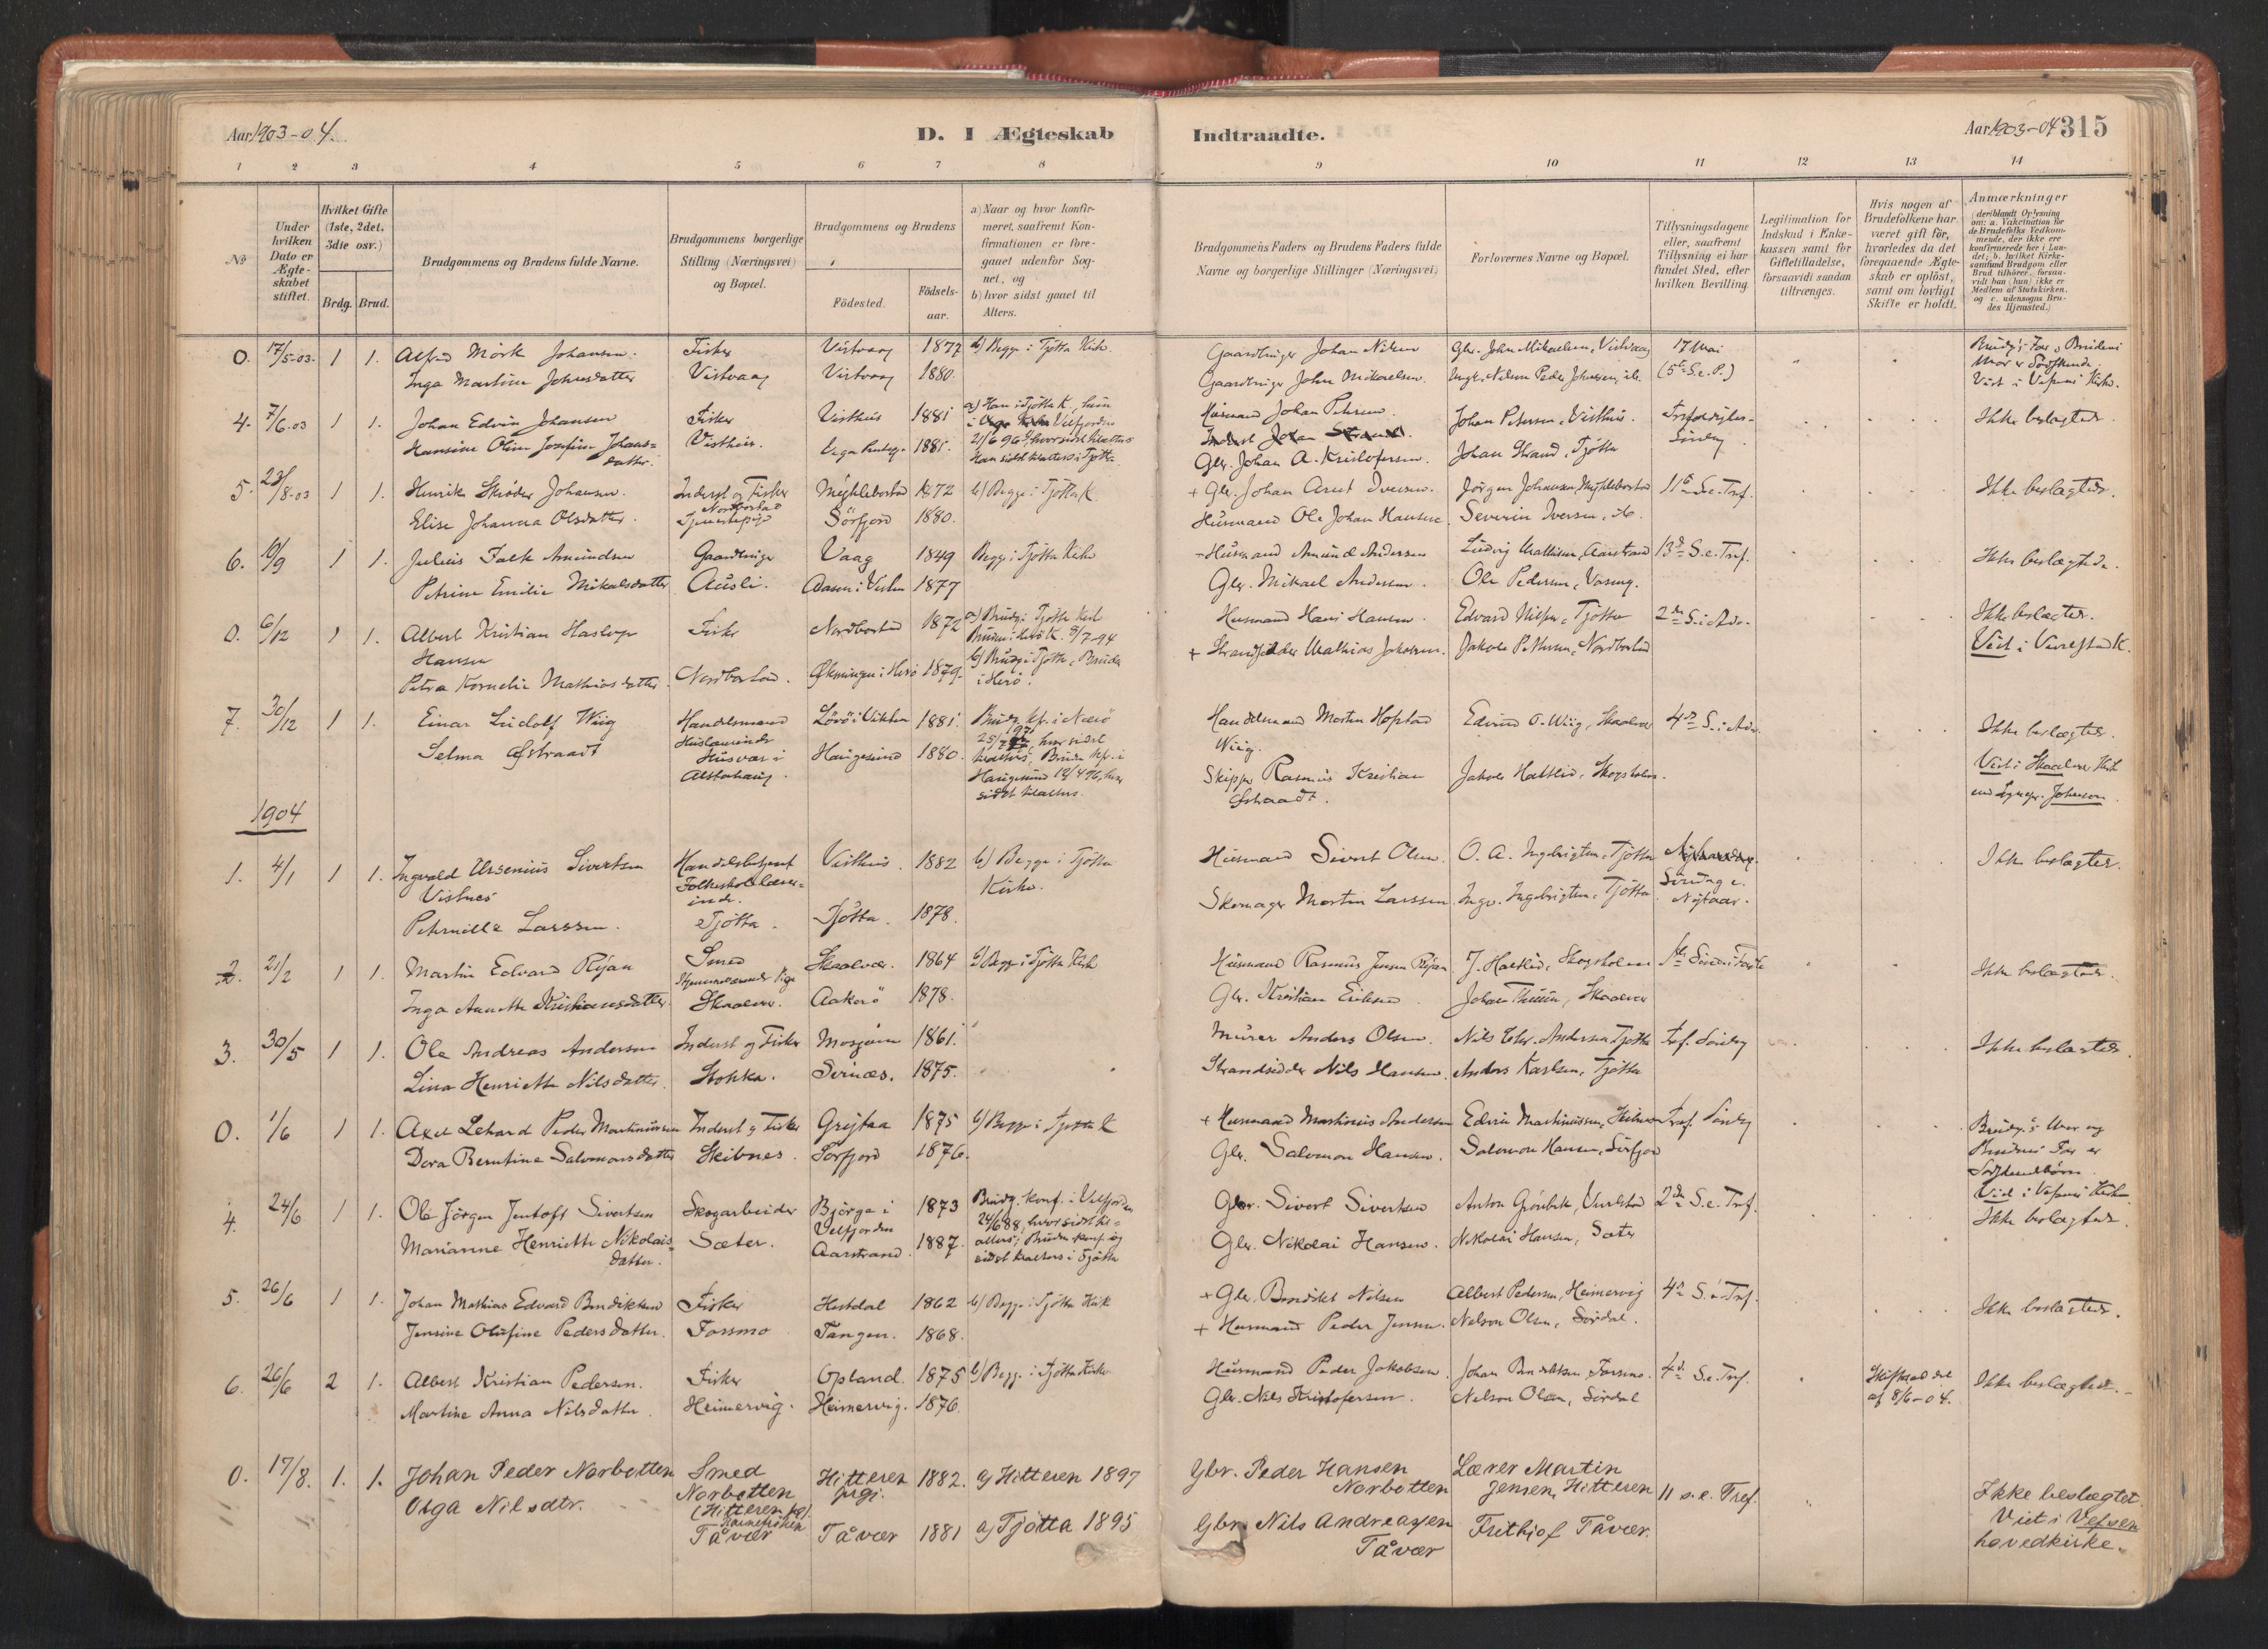 Aar 1903-04.
D. I Ægteskab
Indtraadte.
Aar 1903-04 315
1 2 3 4 5 6 7 8 9 10 11 12 13 14
No
Under hvilken Dato er Ægte-skabet stiftet.
Hvilket Gifte (1ste, 2det, 3die osv.)
Brdg. Brud.
Brudgommens og Brudens fulde Navne.
Brudgommens borgerlige Stilling (Næringsvei) og Bopæl.
Brudgommens og Brudens
Födested.
Födsels-aar.
a) Naar og hvor konfir-meret, saafremt Kon-firmationen er fore-gaaet udenfor Sog-net, og
b) hvor sidst gaaet til Alters.
Brudgommens Faders og Brudens Faders fulde Navne og borgerlige Stillinger (Næringsvei)
Forlovernes Navne og Bopæl.
Tillysningsdagene eller, saafremt Tillysning ei har fundet Sted, efter hvilken Bevilling.
Legitimation for Indskud i Enke-kassen samt for Giftetilladelse, forsaavidt saadan tiltrænges.
Hvis nogen af Brudefolkene har været gift før, hvorledes da det foregaaende Ægte-skab er opløst, samt om lovligt Skifte er holdt.
Anmærkninger
(deriblandt Oplysning om: a. Vakcination for de Brudefolks Vedkom-mende, der ikke ere konfirmerede her i Lan-det; b. hvilket Kirke-samfund Brudgom eller Brud tilhører, forsaa-vidt han (hun) ikke er Medlem af Statskirken, og c. udensogns Bru-des Hjemsted.)
0. 17/5-03. 1 1. Alfred Mörk Johansen. Fisker Vistvaag 1877 b) Begge i Tjötta Kirke. Gaardbruger Johan Nilsen Gbr. John Mikaelsen, Vistvaag 17 Mai
Inga Martine Johnsdatter Vistvaag Vistvaag 1880. Gaardbruger John Mikaelsen. (5te S.e.P.)
Brudg's Far og Brudens Mor er Södskende. Viet i Vefsens Kirke.
4. 7/6.03 1 1. Johan Edvin Johansen Fisker Visthus 1881 a) Han i Tjötta K, hun i Velfjorden 21/6 96 b) hvor sidst tilalters Han sidst tilalters i Tjötta
Husmand Johan Petersen. Johan Petersen, Visthus. Trefoldigheds-Söndag Ikke beslægtede.
Hansine Oline Josefine Johans-datter. Visthus. 1881. Gbr. Johan A. Kristofersen. Johan Strand, Tjötta
5. 23/8-03 1 1. Henrik Skröder Johansen. Inderst og Fisker Mejhlebostad 1872 b) Begge i Tjötta K. + Gbr. Johan Arnt Iversen. Jörgen Johansen, Myklebostad 11te S.e. Tref. Ikke beslægtede.
Elise Johanna Olsdatter. Nordbostad Tjenestepige Sörfjord 1880. Husmand Ole Johan Hansen. Severin Iversen, do.
6. 19/9 1 1. Julius Falk Amundsen Gaardbruger Vaag 1849 Begge i Tjötta Kirke Husmand Amund Andersen Ludvig Mathisen, Aarstrand 13de S.e. Tref. Ikke beslægtede.
Petrine Emilie Mikalsdatter Ausli. 1877 Gbr. Mikael Andersen. Ole Pedersen, Vaseng.
0. 6/12 1 1. Albert Kristian Haslop Hansen Fisker Nordbostad 1872 a) Brudg. i Tjötta Kirke Bruden i Herö K. 8/7-94
b) Brudg i Tjötta, Bruden i Herö. Husmand Hans Hansen. Edvard Nilsen, Tjötta 2den S. i Adv. Ikke beslægtede. Viet i Vevelstad K.
Petra Kornelie Mathiasdatter. Nordbostad. Økningen i Herö 1879. + Strandsidder Mathias Johansen. Jakob Pettersen, Nordbostad
7. 30/12 1 1. Einar Ludolf Wiig Handelsmand Lövö i Vikten 1881. Brudg. kf. i Nærö hvor sidst tilalters; Bruden kf. i Haugesund 12/4 96, hvor sidst tilalters.
Handelsmand Morten Hopstad Wiig. Edvind O. Wiig, Skaalvær 4de S. i Adv. Ikke beslægtede.
Selma Østraadt Huslærerinde Husvær i Alstahaug. Haugesund 1880. Skipper Rasmus Kristian Østraadt. Jakob Hatlid, Skogsholm. Viet i Skaalvær Kirke
1904
1. 4/1 1 1. Ingvald Arsenius Sivertsen Visthus Handelsbetjent Visthus. 1882 b) Begge i Tjötta Kirke. Husmand Sivert Olsen. O. A. Ingebrigtsen, Tjötta Söndag e. Nytaar. Ikke beslægtede.
Petrnille Larssen. Folkeskolelærer-inde. Tjötta. Tjötta. 1878. Skomager Morten Larssen Ingv. Ingebrigtsen, Tjötta
2. 21/2 1 1. Martin Edvard Rijan Smed Skaalvær. 1864 b) Begge i Tjötta Kirke Husmand Rasmus Jensen Rijan J. Hatlid, Skogsholm 1ste Sönd. i Faste Ikke beslægtede.
Inga Annette Kristiansdatter. Skaalvær. Aakerö 1878. Gbr. Kristian Eriksen Johan Skaalvær
3. 30/5 1 1. Ole Andreas Andersen Inderst og Fisker Mosjøen 1861. Murer Anders Olsen. Nils Chr. Andersen Tjötta Tref. Söndag Ikke beslægtede.
Lina Henriette Nilsdatter. Stokka. Sernæs. 1875. Strandsidder Nils Hansen. Anders Karlsen, Tjötta
0. 1/6 1 1. Axel Lehard Peder Martinussen Inderst og Fisker Grejtaa 1875 b) Begge i Tjötta K + Husmand Martinus Andersen Edvin Martinussen, Tref. Söndag
Dora Berntine Salomonsdatter Skibnes. Sörfjord 1876. Gbr. Salomon Hansen. Salomon Hansen, Sörfjord
Brudg.s Mor og Brudens Far er Södskendebörn. Viet i Vefsens Kirke
4. 24/6 1 1. Ole Jörgen Jentoft Sivertsen Skogarbeider Björge i Velfjorden 1873 Brudg. konf. i Velfjorden 24/6 88, hvor sidst til-alters; Bruden konf. og sidst tilalters i Tjötta
Gbr. Sivert Sivertsen Anton Grönbek, 2den S.e. Tref. Ikke beslægtede.
Marianne Henriette Nikolais-datter. Sæter. Aarstrand. 1887. Gbr. Nikolai Hansen. Nikolai Hansen, Sæter
5. 26/6 1 1. Johan Mathias Edvard Bendiktsen Fisker Hestdal 1862 b) Begge i Tjötta Kirke + Gbr. Bendikt Nilsen Albert Pedersen, Heimervig 4de S. e. Tref. Ikke beslægtede.
Jensine Olufine Pedersdatter. Forsmo Tangen. 1868. + Husmand Peder Jensen. Nelson Olsen, Sördal.
6. 26/6 2 1. Albert Kristian Pedersen. Fisker Opland. 1875 b) Begge i Tjötta Kirke Husmand Peder Jakobsen. Johan Bendiktsen, Forsmo. 4de S.e. Tref. Skifteattest af 8/6-04. Ikke beslægtede.
Martine Anna Nilsdatter. Heimervig. Heimervig. 1876. Gbr. Nils Kristofersen. Nelson Olsen, Sördal
0. 17/8. 1. 1. Johan Peder Norbotten Smed Norbotten (Hitteren pgj.) Hitteren prgj. 1882. a) Hitteren 1897 Gbr. Peder Hansen Norbotten Lærer Martin Jensen, Hitteren 11 s.e. Tref. Ikke beslægtet. Viet i Vefsen hovedkirke.
Olga Nilsdtr. Tåvær Tåvær 1881 a) Tjötta 1895 Gbr. Nils Andreassen Tåvær Frithjof Tåvær.